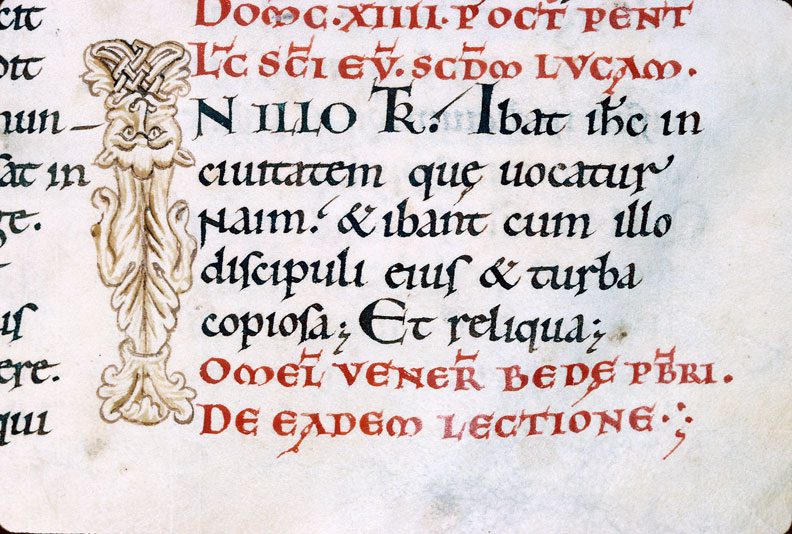 cit
ott
nun
sat in
ge.
us
ere.
qui
DOMC. XIIII. P̄ OCT̄ PENT
LC̄ SC̄I EV̄. SCD̄M LVCAM.
IN ILLO TR̄. Ibat ih̄c in
ciuitatem que̜ uocatur
Naim. & ibant cum illo
discipuli eius & turba
copiosa; Et reliqua;
OMEL̄ VENER̄ BEDE̜ PB̄RI.
DE EADEM LECTIONE.